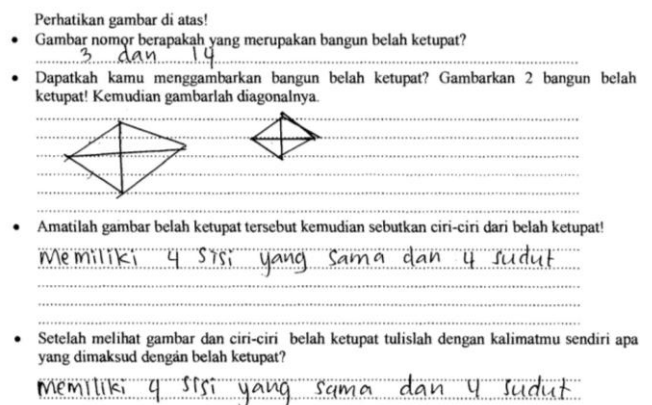 Perhatikan gambar di atas!
• Gambar nomor berapakah yang merupakan bangun belah ketupat?
3 dan 14
• Dapatkah kamu menggambarkan bangun belah ketupat? Gambarkan 2 bangun belah
ketupat! Kemudian gambarlah diagonalnya.
• Amatilah gambar belah ketupat tersebut kemudian sebutkan ciri-ciri dari belah ketupat!
Memiliki 4 sisi yang sama dan 4 sudut
• Setelah melihat gambar dan ciri-ciri belah ketupat tulislah dengan kalimatmu sendiri apa
yang dimaksud dengan belah ketupat?
Memiliki 4 sisi yang sama dan 4 sudut